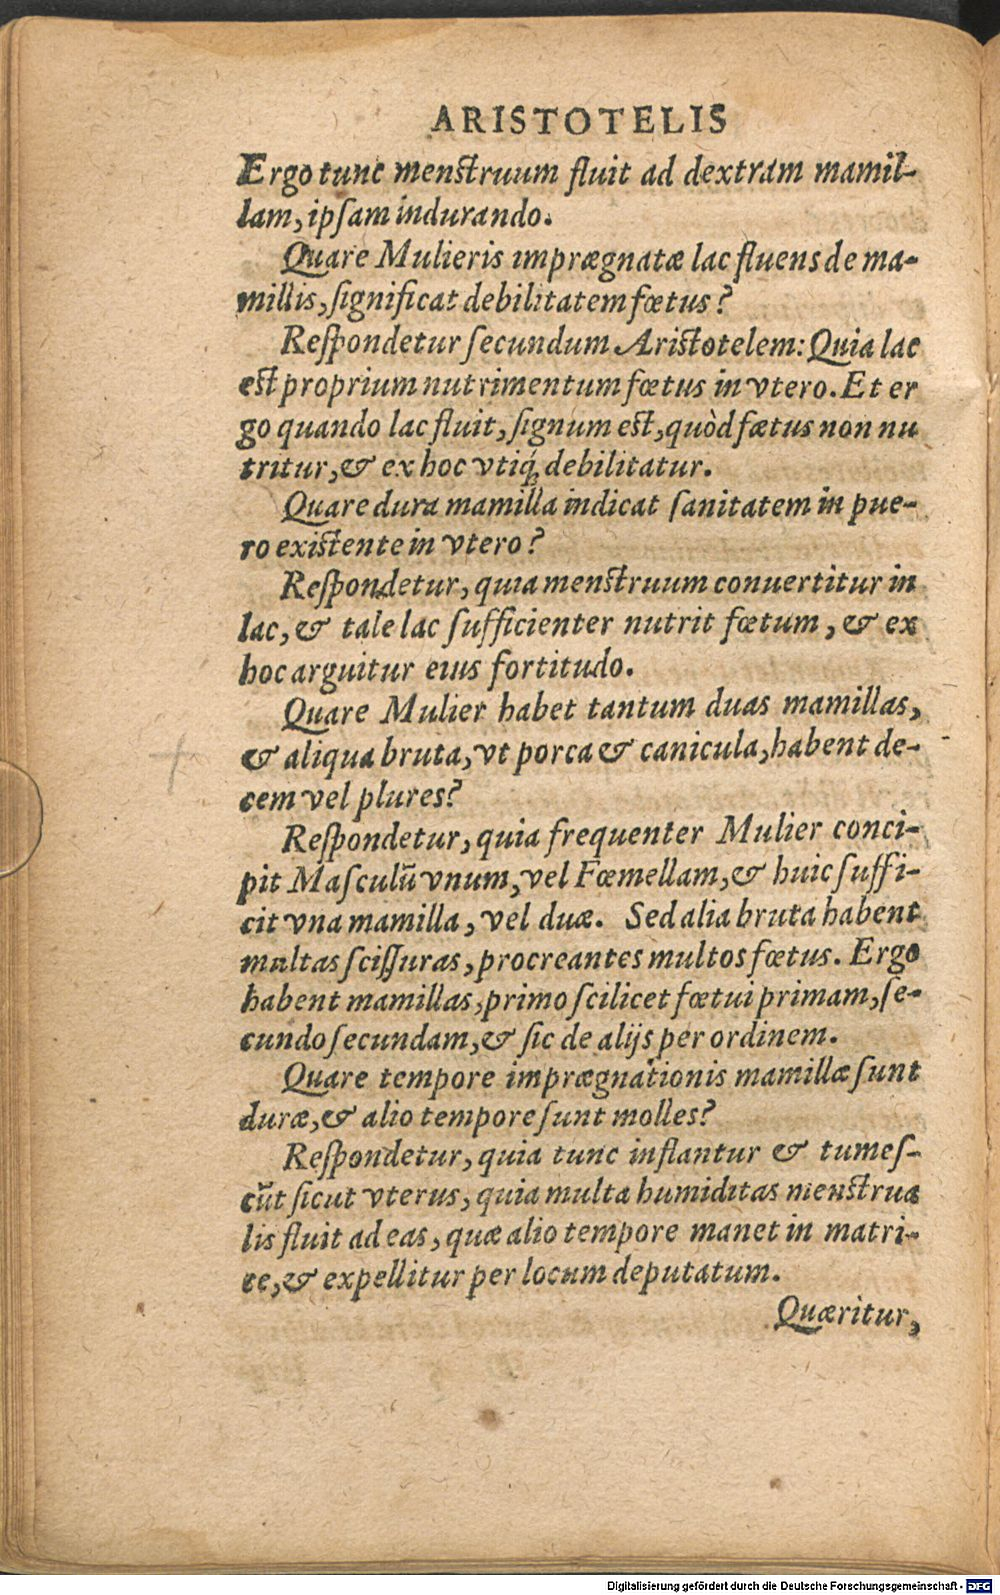 ARISTOTELIS
Ergo tunc menstruum fluit ad dextram mamil-
lam, ipsam indurando.
Quare Mulieris imprægnatæ lac fluens de ma-
millis, significat debilitatem fœtus?
Respondetur secundum Aristotelem: Quia lac
est proprium nutrimentum fœtus in vtero. Et er
go quando lac fluit, signum est, quòd fœtus non nu
tritur, & ex hoc vtiq́; debilitatur.
Quare dura mamilla indicat sanitatem in pue-
ro existente in vtero?
Respondetur, quia menstruum conuertitur in
lac, & tale lac sufficienter nutrit fœtum, & ex
hoc arguitur eius fortitudo.
Quare Mulier habet tantum duas mamillas,
& aliqua bruta, vt porca & canicula, habent de-
cem vel plures?
Respondetur, quia frequenter Mulier conci-
pit Masculū vnum, vel Fœmellam, & huic suffi-
cit vna mamilla, vel duæ. Sed alia bruta habent
multas scissuras, procreantes multos fœtus. Ergo
habent mamillas, primo scilicet fœtui primam, se-
cundo secundam, & sic de alijs per ordinem.
Quare tempore imprægnationis mamillæ sunt
duræ, & alio tempore sunt molles?
Respondetur, quia tunc inflantur & tumes-
cūt sicut vterus, quia multa humiditas menstrua
lis fluit ad eas, quæ alio tempore manet in matri-
ce, & expellitur per locum deputatum.
Quæritur,
Digitalisierung gefördert durch die Deutsche Forschungsgemeinschaft - DFG